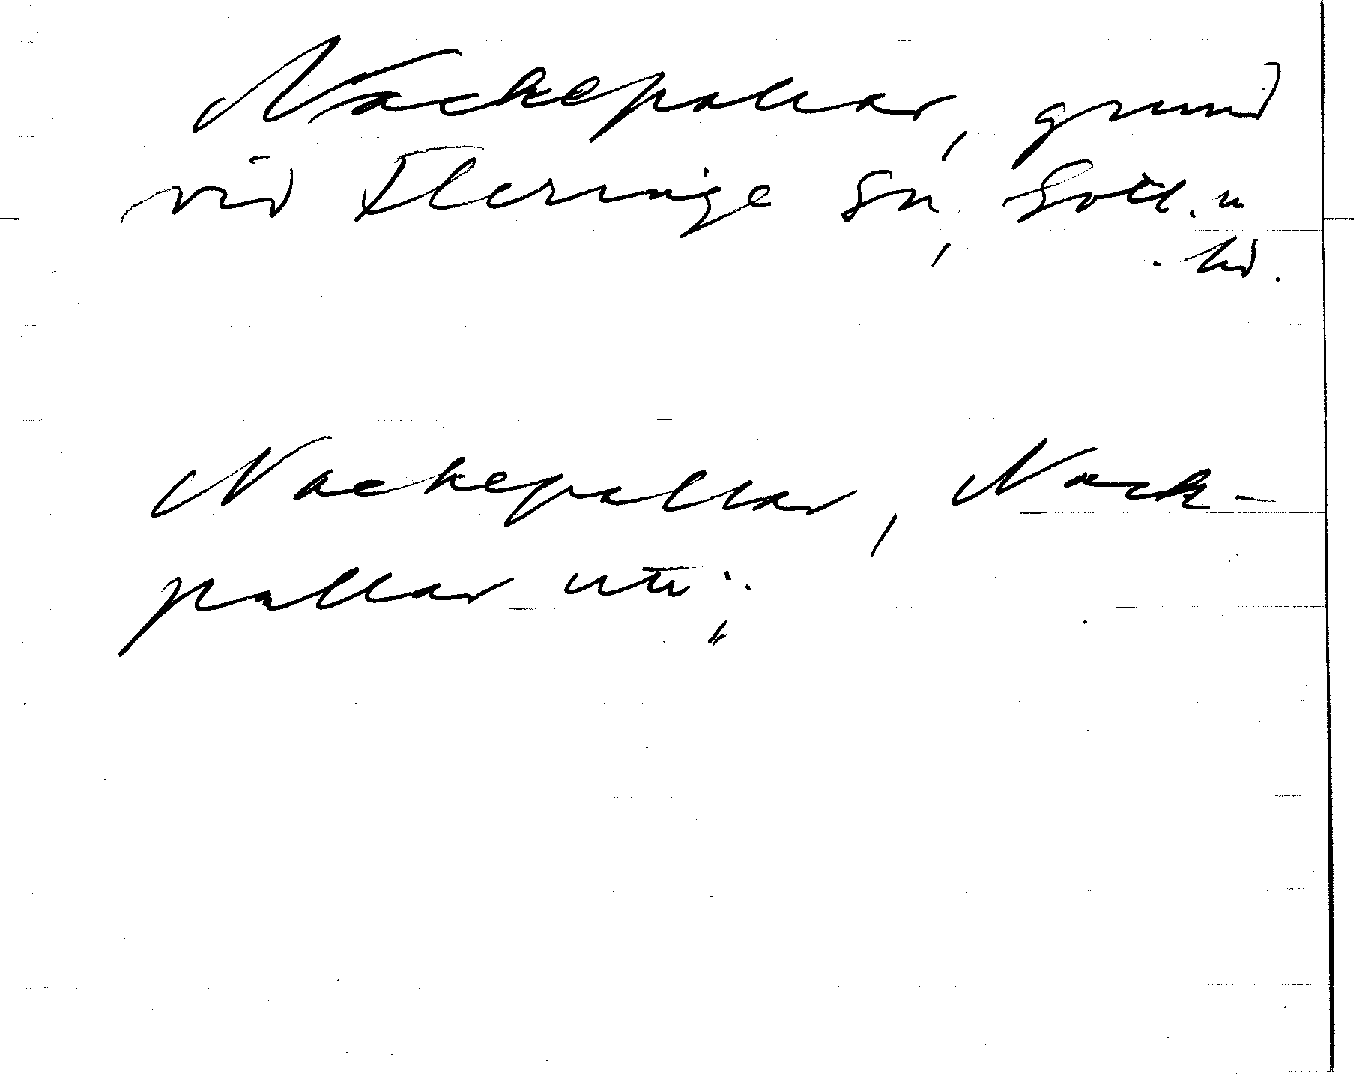 Nackepallar, grund
vid Fleringe sn, Gotl. n
hd.
Nackepallar, Nack-
pallar